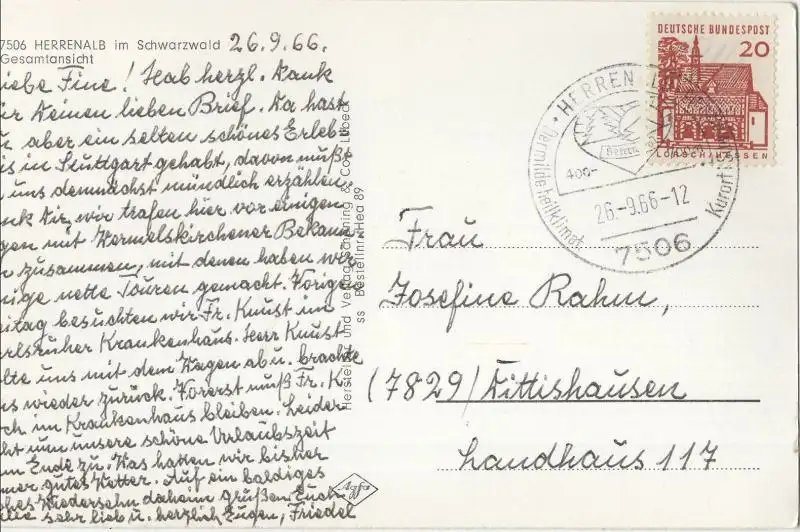 7506 HERRENALB im Schwarzwald 26.9.66.
Gesamtansicht
iebe Fine! Hab herzl. Dank
ür Deinen lieben Brief. Da hast
u aber ein selten schönes Erleb-
is in Stuttgart gehabt, davon mußt
uns demnächst mündlich erzählen.
nk Dir, wir trafen hier vor einigen
gen mit Wermelskirchener Bekann-
n zusammen, mit denen haben wir
nige nette Touren gemacht. Vorigen
eitag besuchten wir Fr. Knust im
rlsruher Krankenhaus. Herr Knust
lte uns mit dem Wagen ab u. brachte
ns wieder zurück. Vorerst muß Fr. K.
ch im Krankenhaus bleiben. Leider
ht nun unsere schöne Urlaubszeit
um Ende zu. Was hatten wir bisher
mer gutes Wetter. Auf ein baldiges
hes Wiedersehn daheim grüßen Euch
alle sehr lieb u. herzlich Eugen, Friedel
Herstellg. und Verlag Schöning & Co., Lübeck
ss Bestellnr. Hea 89
Agfa
DEUTSCHE BUNDESPOST
20
LORSCH/HESSEN
HERRENALB
400-
26.-9.66-12
7506
Der milde heilklimat. Kurort
Frau
Josefine Rahm,
(7829) Dittishausen
Landhaus 117